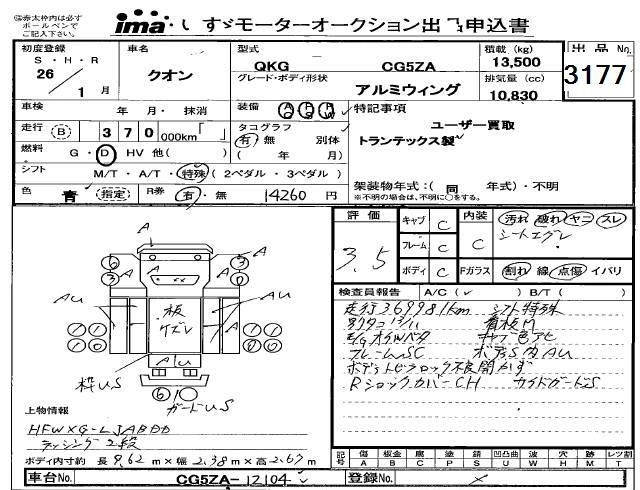 ※赤太枠内は必ず
ボールペンで
ご記入下さい。
ima いすゞモーターオークション出品申込書
初度登録 S・H・R 26 / 1 月
車名 クオン
型式 QKG CG5ZA
グレード・ボディ形状 アルミウィング
積載 (kg) 13,500
排気量 (cc) 10,830
出品 No. 3177
車検 年 月・抹消
装備
特記事項
ユーザー買取
トランテックス製
走行 B 370 000km
タコグラフ 有・無 別体
( 年 月)
燃料 G・D HV 他( )
シフト M/T・A/T・特殊 ( 2ペダル・3ペダル )
色 青 指定 R券 有・無 14260 円
架装物年式:( 同 年式)・不明
※不明の場合は、不明に○をする。
評価 3.5
キャブ C
フレーム C
ボディ C
内装 C
汚れ 破れ ヤニ スレ
Fガラス 割れ 線 点傷 イバリ
検査員報告 A/C( ✓ ) B/T( )
走行369981km シフト特殊
フレームSC ボディS内AU
RショックカバーCH サイドガードS
A
A
A
A
A
AU
AU
板
ケズレ
AU
枠US
ガードUS
上物情報
ラッシング2段
ボディ内寸約 長 9.62 m×幅 2.38 m×高 2.67 m
記号 傷 A 板金 B 腐 C 塗 P 錆 S 凹凸曲 U 波 W 穴 H 跡 M レツ割 T
車台No. CG5ZA-12104
登録No.